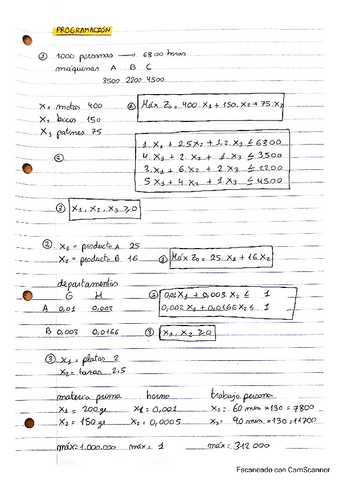 PROGRAMACIÓN
① 1000 personas → 6800 horas
máquinas A B C
3500 2200 4500
X₁ motos 400
① Máx Z₀ = 400·X₁ + 150·X₂ + 75·X₃
X₂ bicis 150
X₃ patines 75
②
1·X₁ + 2,5X₂ + 1,2·X₃ ≤ 6800
4·X₁ + 2·X₂ + 1·X₃ ≤ 3500
3·X₁ + 6·X₂ + 2·X₃ ≤ 2200
5·X₁ + 4·X₂ + 1·X₃ ≤ 4500
③ X₁, X₂, X₃ ≥ 0
② X₁ = producto A 25
X₂ = producto B 16
① Máx Z₀ = 25·X₁ + 16·X₂
departamentos
G H
A 0,01 0,002
B 0,003 0,0166
② 0,01X₁ + 0,003X₂ ≤ 1
0,002X₁ + 0,0166X₂ ≤ 1
③ X₁, X₂ ≥ 0
③ X₁ = platos 2
X₂ = tazas 2,5
materia prima horno trabajo personas
X₁ = 200gr X₁ = 0,001 X₁: 60 min × 130 = 7800
X₂ = 150gr X₂ = 0,0005 X₂: 90 min × 130 = 11700
máx = 1.000.000 máx = 1 máx = 312000
Escaneado con CamScanner